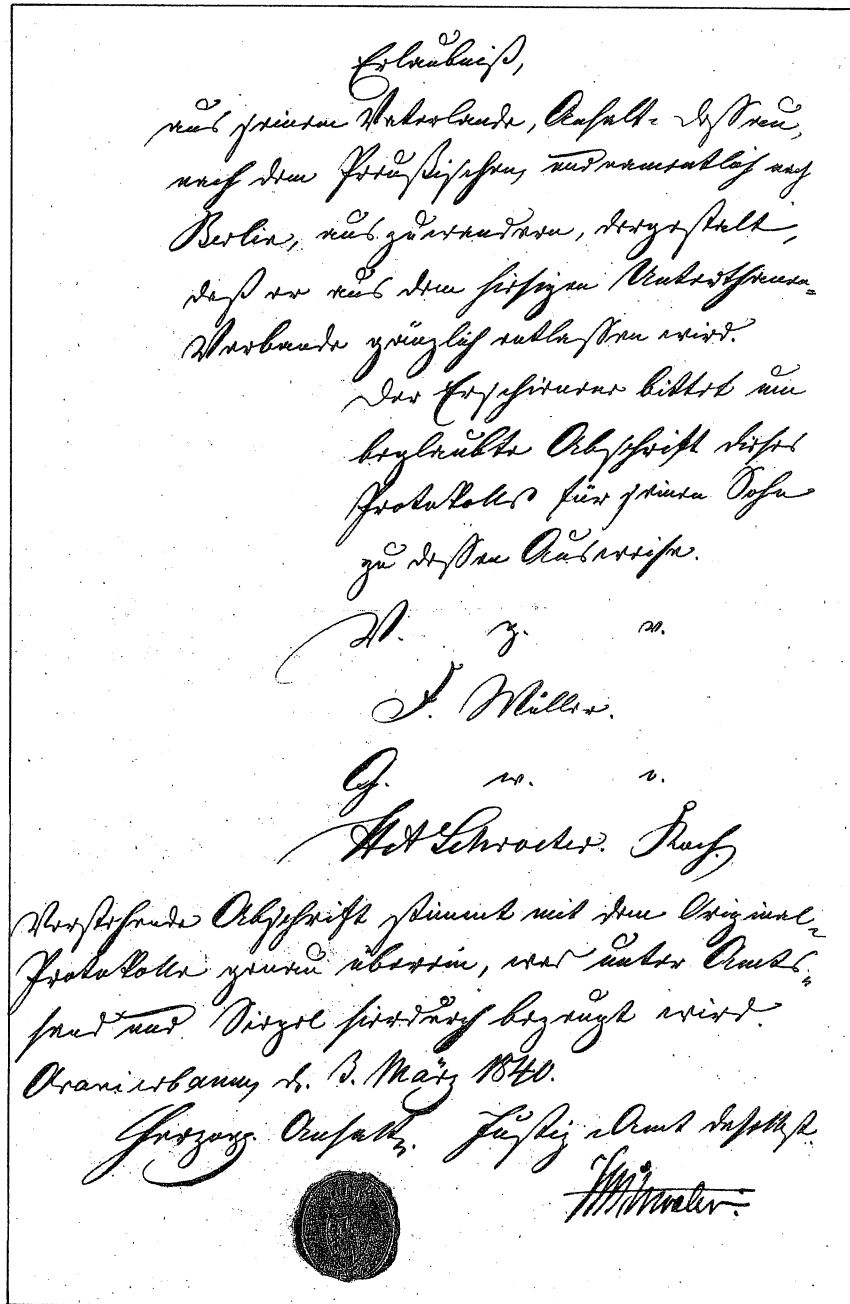 Erlaubniß,
aus seinem Vaterlande, Anhalt-Dessau,
nach dem Preußischen, und namentlich nach
Berlin, auszuwandern, dergestalt,
daß er aus dem hiesigen Unterthanen-
Verbande gänzlich entlassen wird.
Der Erschienene bittet um
beglaubte Abschrift dieses
Protokolls für seinen Sohn
zu dessen Ausweise.
V. g. u.
F. Müller.
G. w. o.
Schroeter. Koch.
Vorstehende Abschrift stimmt mit dem Original-
Protokolle genau überein, was unter Amts-
hand und Siegel hierdurch bezeugt wird.
Oranienbaum, d. 3. März 1840.
Herzogl. Anhalt. Justiz-Amt daselbst.